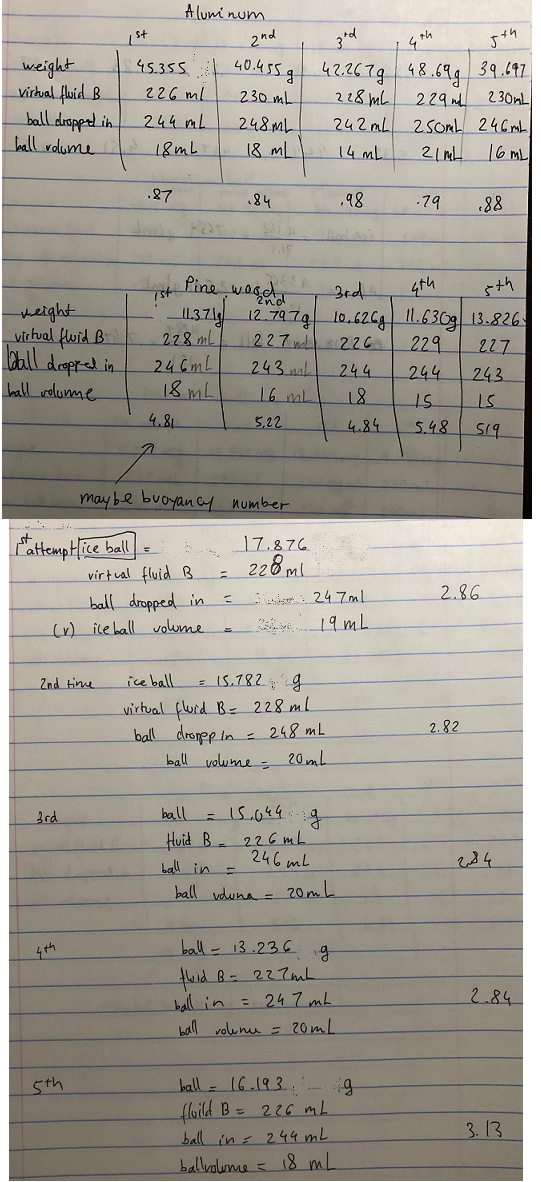 Aluminum
1st 2nd 3rd 4th 5th
weight 45.355 40.455g 42.267g 48.69g 39.697
virtual fluid B 226 ml 230 mL 228 mL 229 mL 230mL
ball dropped in 244 mL 248mL 242mL 250mL 246mL
ball volume 18mL 18 mL 14 mL 21mL 16 mL
.87 .84 .98 .79 .88
Pine wood
1st 2nd 3rd 4th 5th
weight 11.371g 12.797g 10.626g 11.630g 13.826
virtual fluid B 228 mL 227 mL 226 229 227
ball dropped in 246mL 243 mL 244 244 243
ball volume 18 mL 16 mL 18 15 15
4.81 5.22 4.84 5.48 519
maybe buoyancy number
1st attempt ice ball = 17.876
virtual fluid B = 228 ml
ball dropped in = 247ml 2.86
(v) iceball volume = 19 mL
2nd time iceball = 15.782 g
virtual fluid B = 228 ml
ball dropp in = 248 mL 2.82
ball volume = 20mL
3rd ball = 15.044 g
fluid B = 226 mL
ball in = 246 mL 2.84
ball voluma = 20mL
4th ball = 13.236 g
fluid B = 227mL
ball in = 247 mL 2.84
ball volume = 20mL
5th ball = 16.193 g
fluild B = 226 mL
ball in = 244 mL 3.13
ballvolume = 18 mL